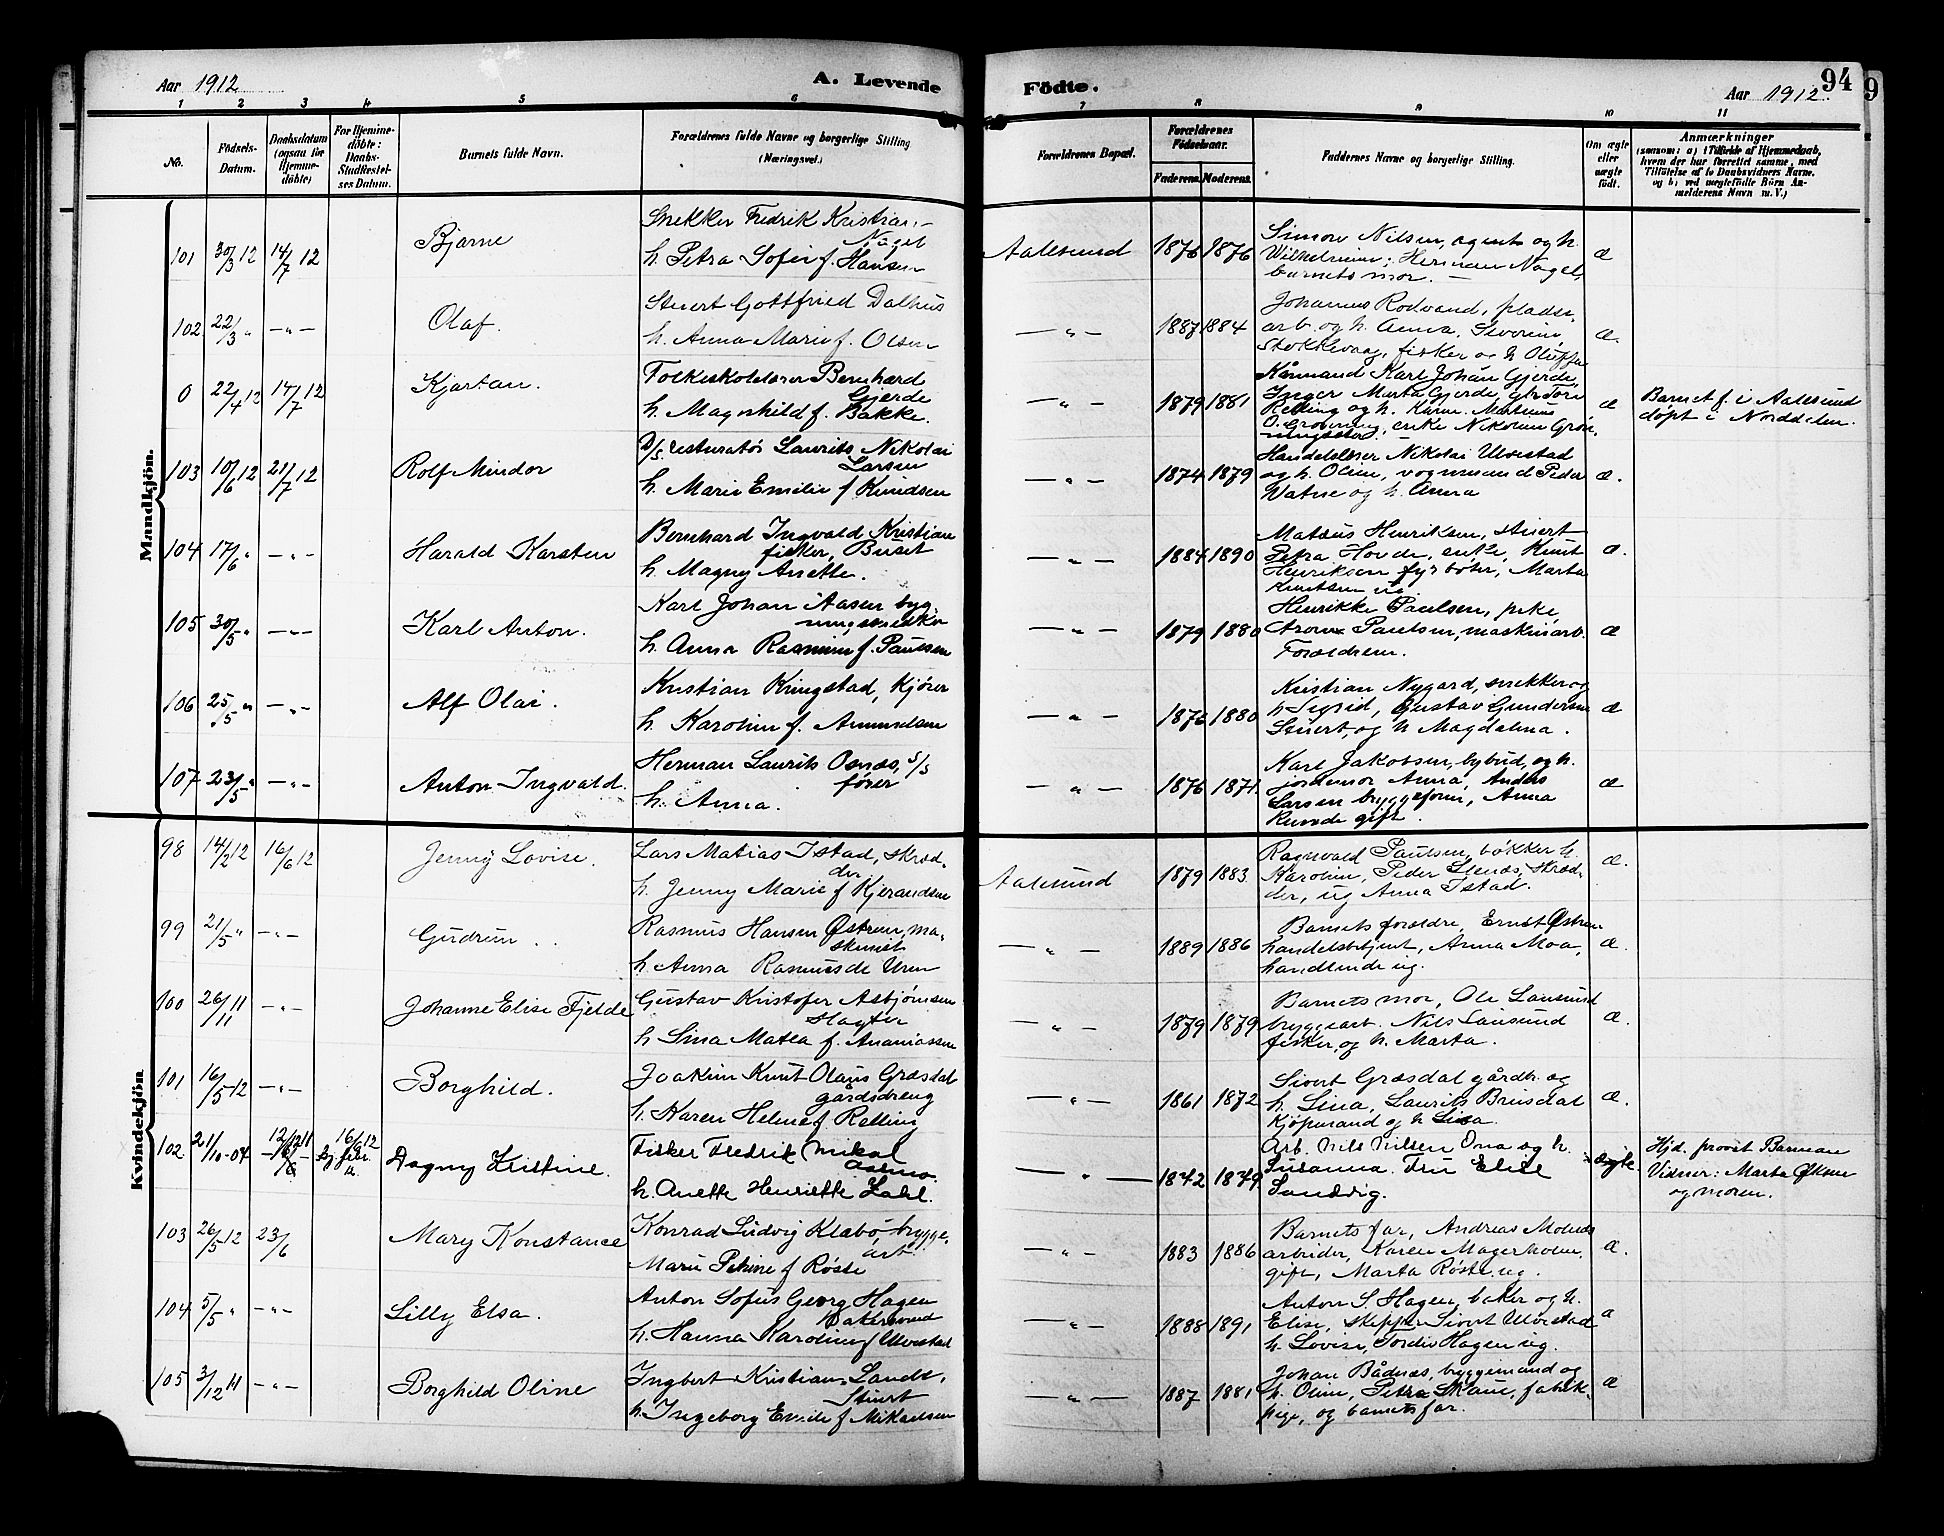 Aar 1912
A. Levende
Födte.
Aar 1912.
94
9
1 2 3 4 5 6 7 8 9 10 11
No.
Födsels-
Datum.
Daabsdatum
(ogsaa for
Hjemme-
döbte)
For Hjemme-
döbte:
Daabs-
Stadfæstel-
ses Datum.
Barnets fulde Navn.
Forældrenes fulde Navne og borgerlige Stilling
(Næringsvei.)
Forældrenes Bopæl.
Forældrenes
Födselsaar.
Faderens. Moderens.
Faddernes Navne og borgerlige Stilling.
Om ægte
eller
uægte
födt.
Anmærkninger
(saasom: a) i Tilfælde af Hjemmedaab,
hvem der har forrettet samme, med
Tilföielse af to Daabsvidners Navne.
og b) ved uægtefödte Börn An-
melderens Navn m. V.)
Mandkjön.
101 30/3 12 14/7 12 Bjarne
Snekker Fredrik Kristian
Nagel
h. Petra Sofie f. Hansen
Aalesund 1876 1876
Simon Nilsen, agent og h.
Vilhelmine; Herman Nagel,
barnets mor. —
æ
102 22/3 " — " — Olaf.
Stuert Gottfried Dalhus
h. Anna Marie f. Olsen
— " — 1887 1884
Johannes Rødvand, plads-
arb. og h. Anna, Severin
Stokkevaag, fisker og h Oluffa
æ.
0 22/4 12 14/7 12 Kjartan.
Folkeskolelærer Bernhard
Gjerde
h. Magnhild f. Bakke.
— " — 1879 1881
Kårmand Karl Johan Gjerde,
Inger Marta Gjerde, gårdbr
Relling og h. Karen. Matsine
O. Grønning, enke Nikoline Grøn-
ningsæter.
æ
Barnet f. i Aalesund
døpt i Norddalen.
103 10/6 12 21/7 12 Rolf Mindor
D/S. restauratør Laurits Nikolai
Larsen
h. Marie Emilie f Knudsen
— " — 1874 1879
Handelslærer Nikolai Ulvestad
og h. Oline, vognmand Peder
Vatne og h. Anna
æ.
104 17/6 " — " — Harald Karsten
Bernhard Ingvald Kristian
fisker, Buset
h. Magny Anette.
— " — 1884 1890
Mateus Henriksen, stuert
Petra Hovde, enke, Knut
Henriksen fyrbøter, Marta
Knutsen ug
æ.
105 30/5 " — " — Karl Anton.
Karl Johan Aasen byg-
ningssnekker
h. Anna Rasmine f. Paulsen
— " — 1879 1880
Henrikke Paulsen, pike,
Aron Paulsen, maskinarb.
Forældrene.
æ
106 25/5 " — " — Alf Olai.
Kristian Kringstad, Kjører
h. Karoline f. Amundsen
— " — 1876 1880
Kristian Nygard, snekker og
h Sigrid, Gustav Gundersen
Stuert, og h Magdalena.
æ
107 23/5 " — " — Anton Ingvald.
Herman Laurits Osnæs, S/S
fører
h. Anna.
— " — 1876 1871.
Karl Jakobsen, bybud, og h.
jordemor Anna, Anders
Larsen bryggeform, Anna
Runde gift.
æ
Kvindekjön
98 14/2 12 16/6 12 Jenny Lovise.
Lars Matias Istad, skræd-
der
h. Jenny Marie f Kjerandsen
Aalesund 1879 1883
Ragnvald Paulsen, bøkker h.
Karoline, Peder Slenes, skræd-
der, ug Anna Istad.
æ.
99 21/5 " — " — Gudrun.
Rasmus Hansen Østrem, ma-
skinist
h. Anna Rasmusde Uren
— " — 1889 1886
Barnets forældre, Ernst Østrem
handelsbetjent, Anna Moa,
handlende ug.
æ.
100 26/11 11 — " — Johanne Elise Fjelde
Gustav Kristofer Asbjørnsen
slagter
h Lina Matea f. Ananiassen
— " — 1879 1879
Barnets mor, Ole Lausund
bryggearb. Nils Lausund
fisker, og h. Marta.
æ.
101 16/5 12 — " — Borghild.
Joakim Knut Olaus Græsdal
gårdsdreng
h. Karen Heline f Relling
— " — 1861 1872
Sivert Græsdal gårdb. og
h. Lina, Laurits Brusdal
Kjøpmand og h Lisa
æ.
102 21/10-04 12/12 11 16/6 12 Dagny Kristine.
Fisker Fredrik Mikal
h. Anette Henriette Zahl.
— " — 1842 1879
Arb. Nils Nilsen Ona og h.
Susanna. Fru Elise
Sandvig.
ægte.
Hjd. provst Barman
Vidner: Marta Olsen
og moren.
103 26/5 12 23/6 Mary Konstance
Konrad Ludvig Klabø, brygge-
arb.
Marie Petrine f Røste
— " — 1883 1886
Barnets far, Andreas Molnes
arbeider, Karen Magerholm,
gift, Marta Røste, ug.
æ.
104 5/5 " — " — Lilly Elsa.
Anton Sofus Georg Hagen
Bakersvend
h. Hanna Karoline f Ulvestad
— " — 1888 1891
Anton S. Hagen, baker og h.
Elise, skipper Sivert Ulvestad
h. Lovise, Tordis Hagen ug.
æ
105 3/12 11 — " — Borghild Oline
Ingbert Kristian Landt,
Stuert
h. Ingeborg Emilie f Mikaelsen
— " — 1887 1881
Johan Bådnæs, byggemand og
h. Oline, Petra Skare, fabrik-
pige, og barnets far.
æ